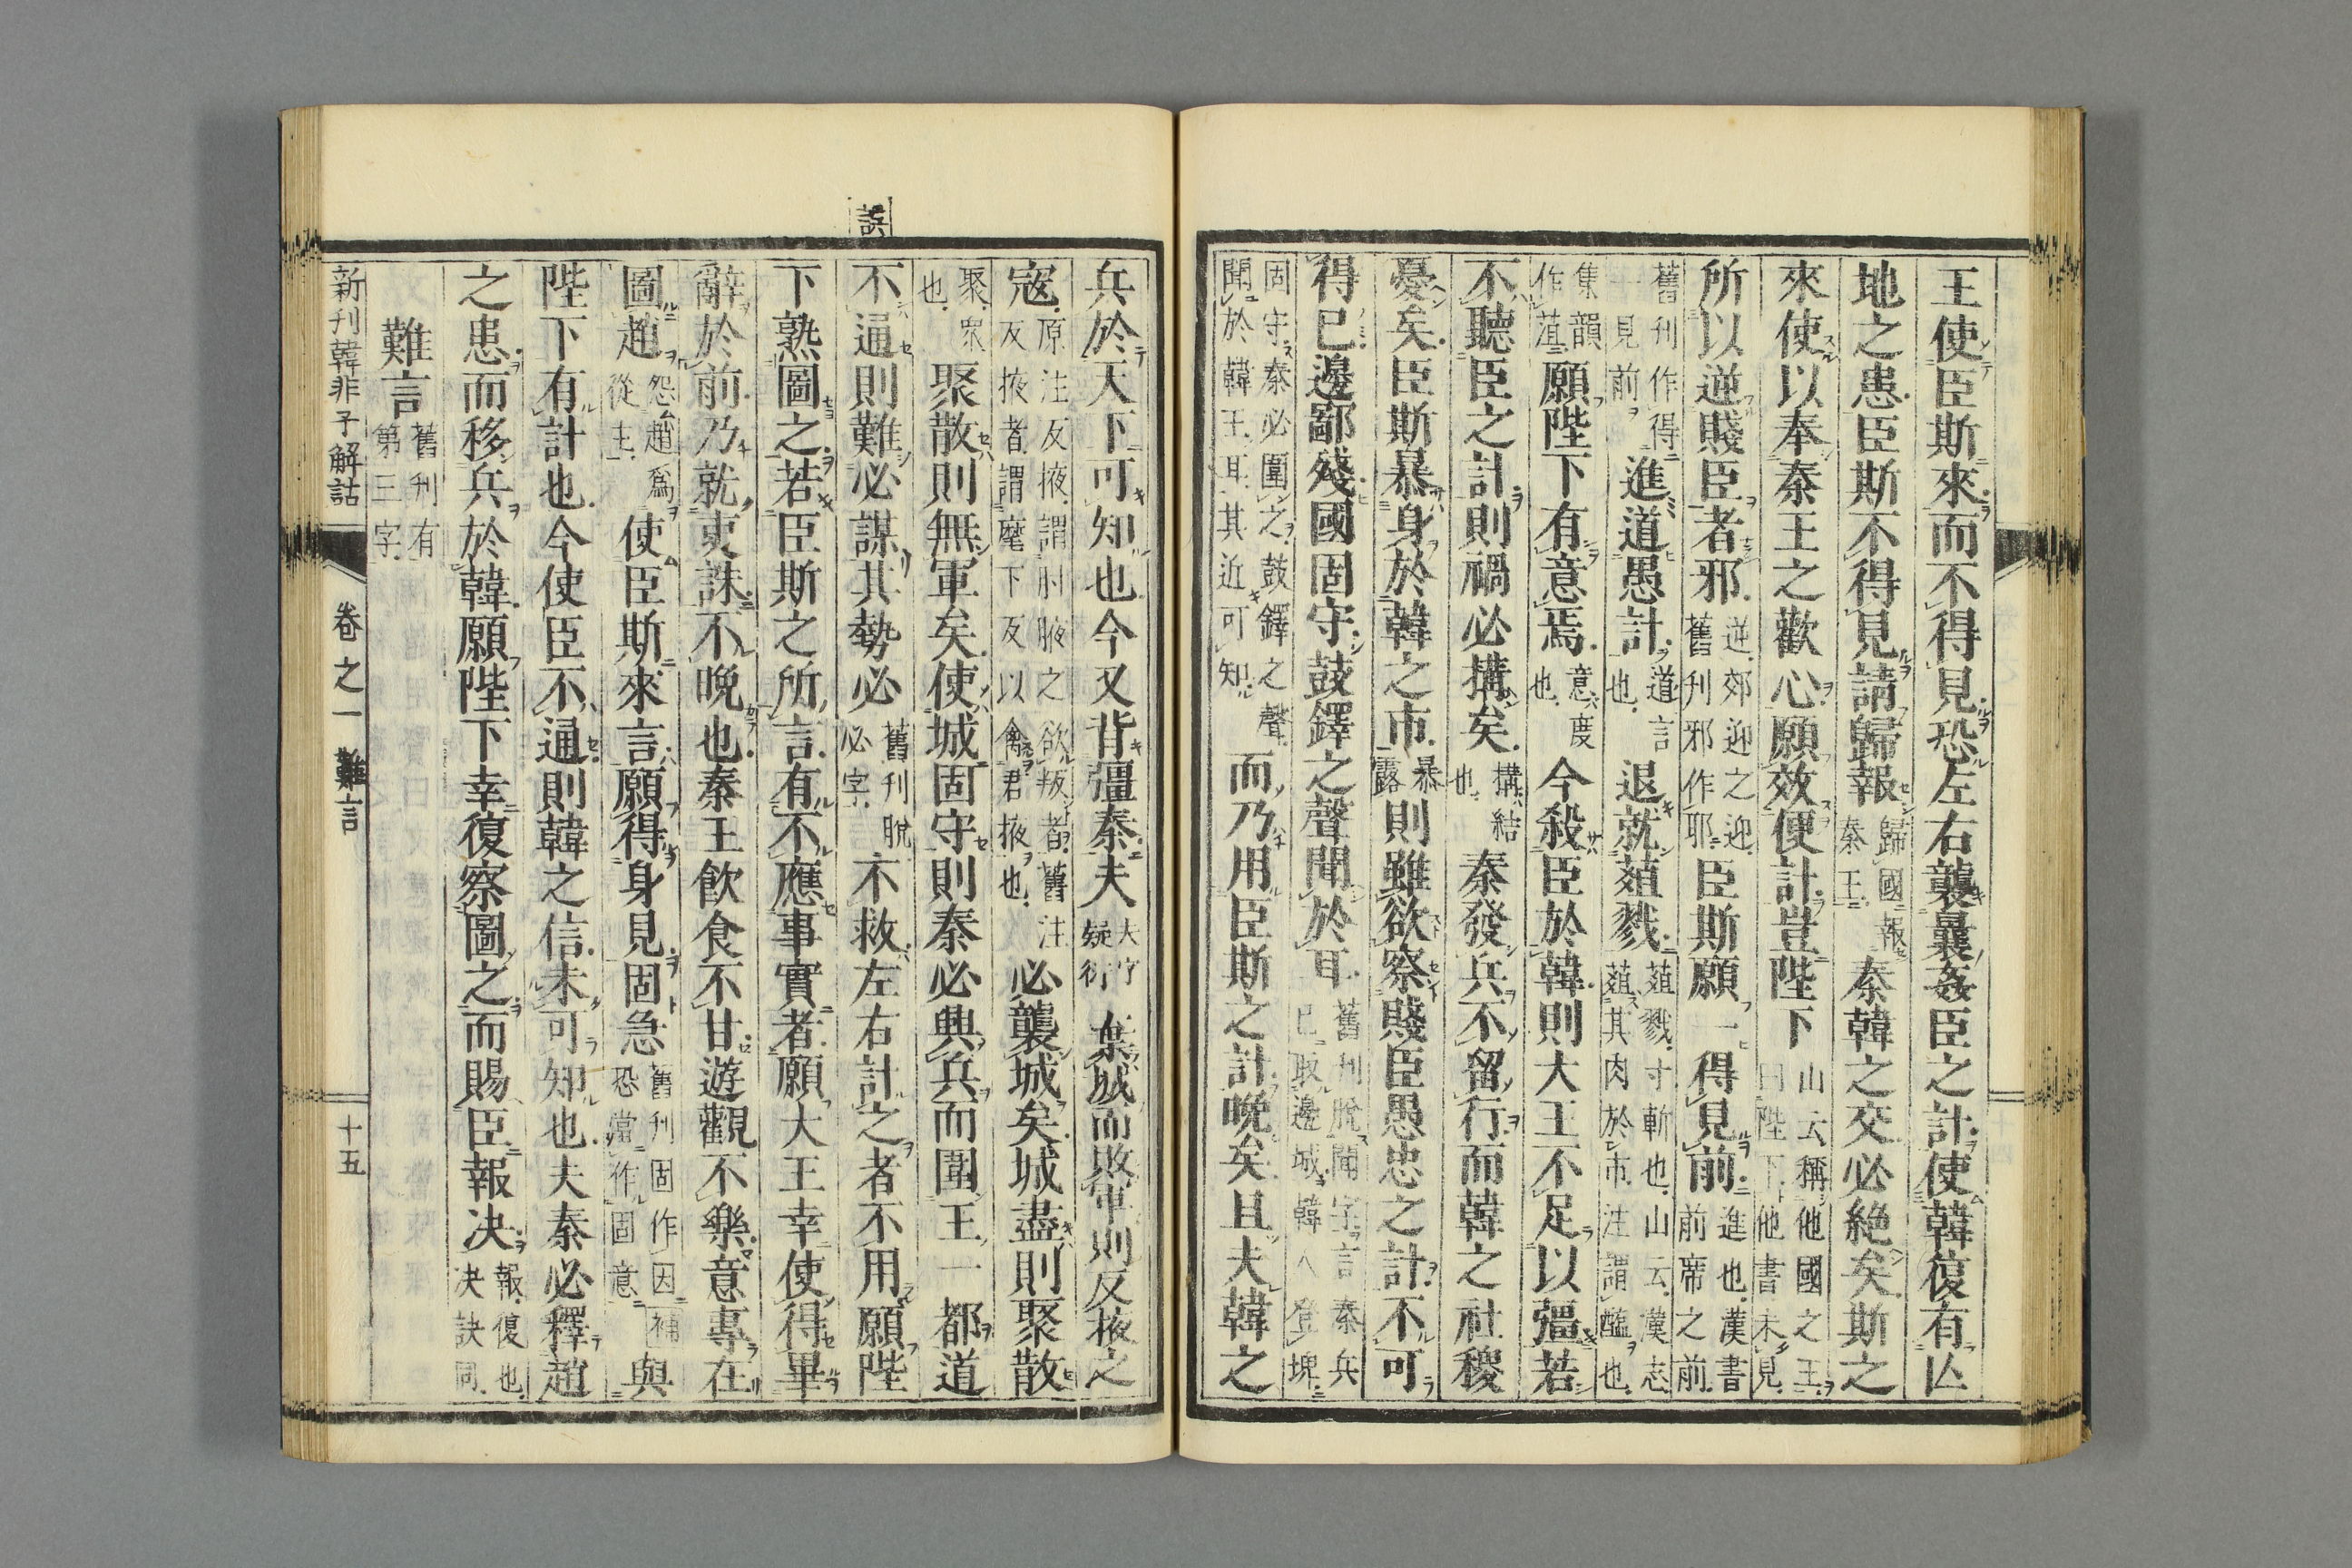 王使臣斯來而不得見恐左右襲曩姦臣之計使韓復有亾
地之患臣斯不得見請歸報歸國報秦王秦韓之交必絕矣斯之
來使以奉秦王之歡心願效便計豈陛下山云稱他國之王曰陛下他書未見
所以逆賤臣者邪逆郊迎之迎舊刊邪作耶臣斯願一得見前進也漢書前席之前
舊刊作得一見前進道愚計道言也退就葅戮葅戮寸斬也山云漢志葅其肉於市注謂醢也
集韻作菹願陛下有意焉意度也今殺臣於韓則大王不足以彊若
不聽臣之計則禍必搆矣搆結也秦發兵不留行而韓之社稷
憂矣臣斯暴身於韓之市暴露則雖欲察賤臣愚忠之計不可
得已邊鄙殘國固守鼓鐸之聲聞於耳舊刊脫聞字言秦兵已取邊城韓人登埤
固守秦必圍之鼓鐸之聲聞於韓王耳其近可知而乃用臣斯之計晚矣且夫韓之
兵於天下可知也今又背彊秦夫夫字疑衍棄城而敗軍則反掖之
寇原注反掖謂肘腋之欲叛者舊注反掖者謂麾下反以禽君掖也必襲城矣城盡則聚散
聚衆也聚散則無軍矣使城固守則秦必興兵而圍王一都道
不通則難必謀其勢必舊刊脫必字不救左右計之者不用願陛
下熟圖之若臣斯之所言有不應事實者願大王幸使得畢
辭於前乃就吏誅不晚也秦王飲食不甘遊觀不樂意專在
圖趙怨趙爲從主使臣斯來言願得身見固急舊刊固作因補恐當作固意與
陛下有計也今使臣不通則韓之信未可知也夫秦必釋趙
之患而移兵於韓願陛下幸復察圖之而賜臣報决報復也决訣同
難言舊刊有第三字
新刊韓非子解詁
卷之一 難言
十五
誤